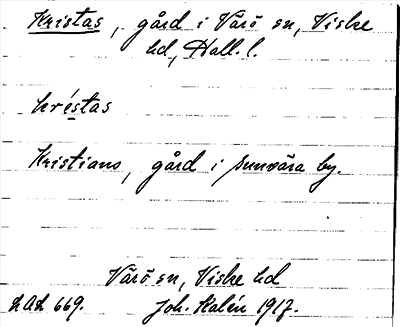 Kristas, gård i Värö sn, Viske
hd, Hall. l.
kréstas
Kristians, gård i Sunvära by.
Värö sn, Viske hd
LAL 669. Joh. Kalén 1917.